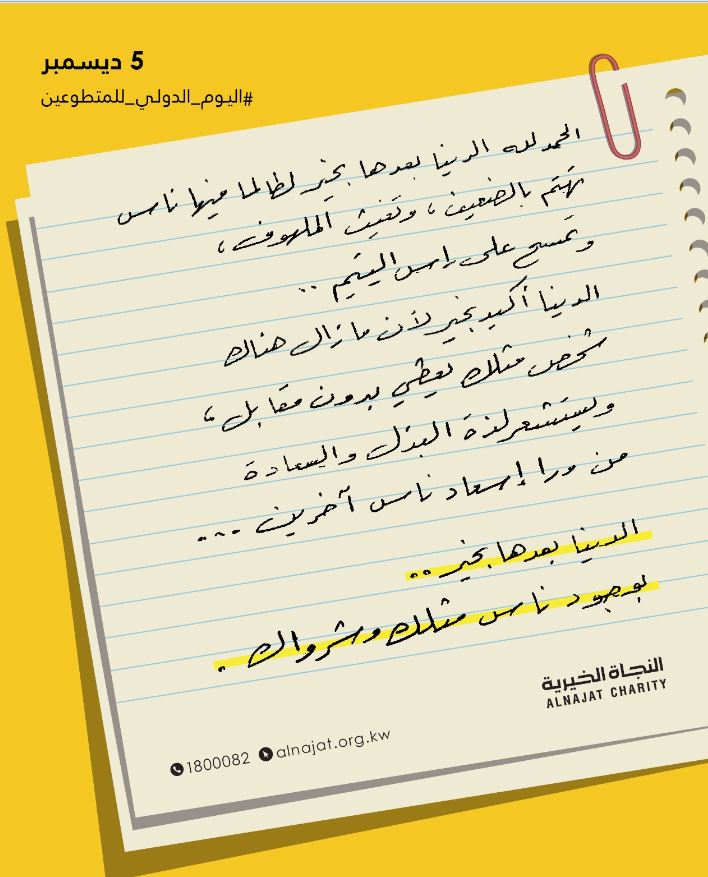 5 ديسمبر
#اليوم_الدولي_للمتطوعين
الحمد لله الدنيا بعدها بخير لطالما فيها ناس
تهتم بالضعيف، وتغيث الملهوف،
وتمسح على راس اليتيم ..
الدنيا أكيد بخير لأن مازال هناك
شخص مثلك يعطي بدون مقابل،
ويستشعر لذة البذل والسعادة
من ورا إسعاد ناس آخرين ...
الدنيا بعدها بخير ..
بوجود ناس مثلك وشرواك .
النجاة الخيرية
ALNAJAT CHARITY
1800082 alnajat.org.kw